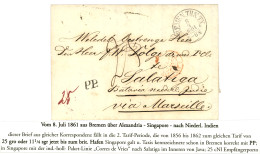 Weledel Gestrenge Heer
Den Heer W. Dolge
Salatiga
via Marseille
PP
25
Vom 8. Juli 1861 aus Bremen über Alexandria - Singapore - nach Niederl. Indien
dieser Brief aus gleicher Korrespondenz fällt in die 2. Tarif-Periode, die von 1856 bis 1862 zum gleichen Tarif von
25 gro oder 11¼ sgr jetzt bis zum brit. Hafen Singapore galt u. Taxis kennzeichnete schon in Bremen korrekt mit PP;
in Singapore mit ind.-holl. Paket-Linie „Cores de Vries" nach Salatiga im Inneren von Java; 25 cNl Empfängerporto